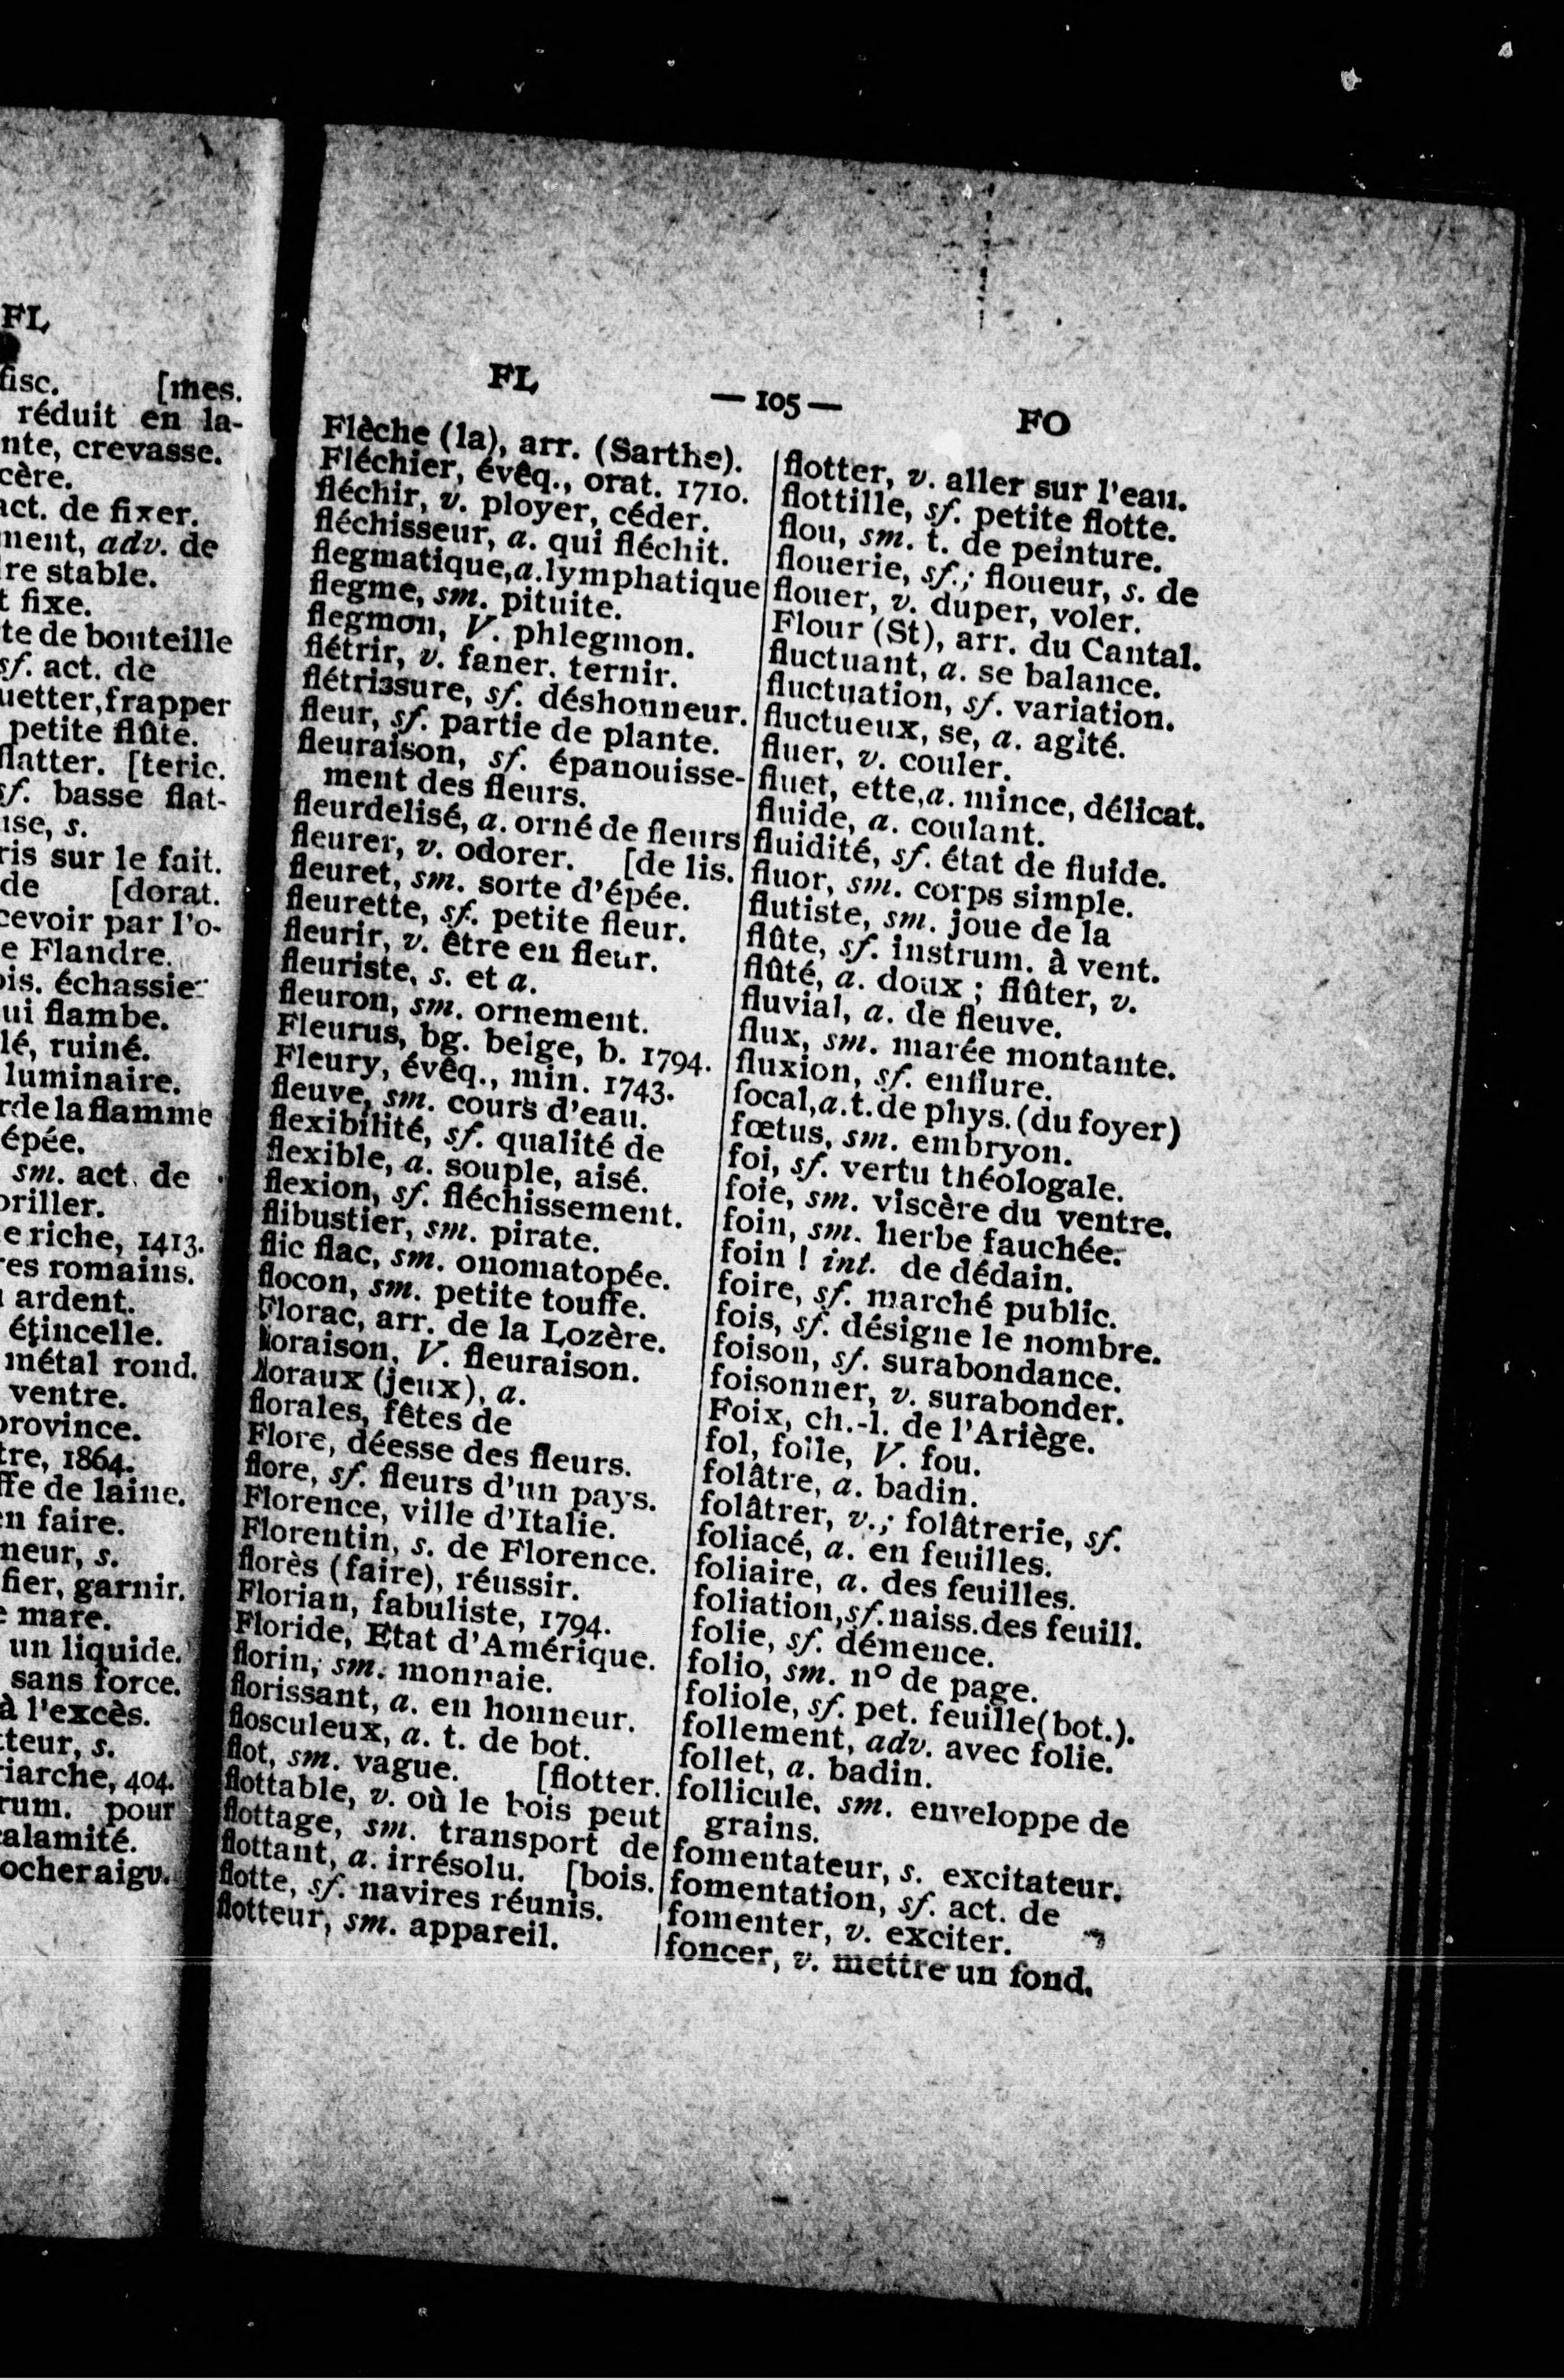 FL
fisc. [mes.
réduit en la-
nte, crevasse.
cère.
act. de fixer.
ment, adv. de
re stable.
t fixe.
te de bouteille
sf. act. de
uetter, frapper
petite flûte.
flatter. [terie.
sf. basse flat-
use, s.
ris sur le fait.
de [dorat.
cevoir par l'o-
e Flandre.
ois. échassier
ui flambe.
lé, ruiné.
luminaire.
r de la flamme
épée.
sm. act. de
briller.
e riche, 1413.
res romains.
ardent.
étincelle.
métal rond.
ventre.
province.
tre, 1864.
ffe de laine.
en faire.
neur, s.
fier, garnir.
e mare.
un liquide.
sans force.
à l'excès.
tteur, s.
riarche, 404.
rum. pour
calamité.
ocher aigu.
FL — 105 — FO
Flèche (la), arr. (Sarthe).
Fléchier, évêq., orat. 1710.
fléchir, v. ployer, céder.
fléchisseur, a. qui fléchit.
flegmatique, a. lymphatique
flegme, sm. pituite.
flegmon, V. phlegmon.
flétrir, v. faner. ternir.
flétrissure, sf. déshonneur.
fleur, sf. partie de plante.
fleuraison, sf. épanouisse-
ment des fleurs.
fleurdelisé, a. orné de fleurs
fleurer, v. odorer. [de lis.
fleuret, sm. sorte d'épée.
fleurette, sf. petite fleur.
fleurir, v. être en fleur.
fleuriste, s. et a.
fleuron, sm. ornement.
Fleurus, bg. belge, b. 1794.
Fleury, évêq., min. 1743.
fleuve, sm. cours d'eau.
flexibilité, sf. qualité de
flexible, a. souple, aisé.
flexion, sf. fléchissement.
flibustier, sm. pirate.
flic flac, sm. onomatopée.
flocon, sm. petite touffe.
Florac, arr. de la Lozère.
floraison, V. fleuraison.
floraux (jeux), a.
florales, fêtes de
Flore, déesse des fleurs.
flore, sf. fleurs d'un pays.
Florence, ville d'Italie.
Florentin, s. de Florence.
florès (faire), réussir.
Florian, fabuliste, 1794.
Floride, Etat d'Amérique.
florin, sm. monnaie.
florissant, a. en honneur.
flosculeux, a. t. de bot.
flot, sm. vague. [flotter.
flottable, v. où le bois peut
flottage, sm. transport de
flottant, a. irrésolu. [bois.
flotte, sf. navires réunis.
flotteur, sm. appareil.
flotter, v. aller sur l'eau.
flottille, sf. petite flotte.
flou, sm. t. de peinture.
flouerie, sf.; floueur, s. de
flouer, v. duper, voler.
Flour (St), arr. du Cantal.
fluctuant, a. se balance.
fluctuation, sf. variation.
fluctueux, se, a. agité.
fluer, v. couler.
fluet, ette, a. mince, délicat.
fluide, a. coulant.
fluidité, sf. état de fluide.
fluor, sm. corps simple.
flutiste, sm. joue de la
flûte, sf. instrum. à vent.
flûté, a. doux ; flûter, v.
fluvial, a. de fleuve.
flux, sm. marée montante.
fluxion, sf. enflure.
focal, a. t. de phys. (du foyer)
fœtus, sm. embryon.
foi, sf. vertu théologale.
foie, sm. viscère du ventre.
foin, sm. herbe fauchée.
foin ! int. de dédain.
foire, sf. marché public.
fois, sf. désigne le nombre.
foison, sf. surabondance.
foisonner, v. surabonder.
Foix, ch.-l. de l'Ariège.
fol, folle, V. fou.
folâtre, a. badin.
folâtrer, v.; folâtrerie, sf.
foliacé, a. en feuilles.
foliaire, a. des feuilles.
foliation, sf. naiss. des feuill.
folie, sf. démence.
folio, sm. nº de page.
foliole, sf. pet. feuille (bot.).
follement, adv. avec folie.
follet, a. badin.
follicule, sm. enveloppe de
grains.
fomentateur, s. excitateur.
fomentation, sf. act. de
fomenter, v. exciter.
foncer, v. mettre un fond.